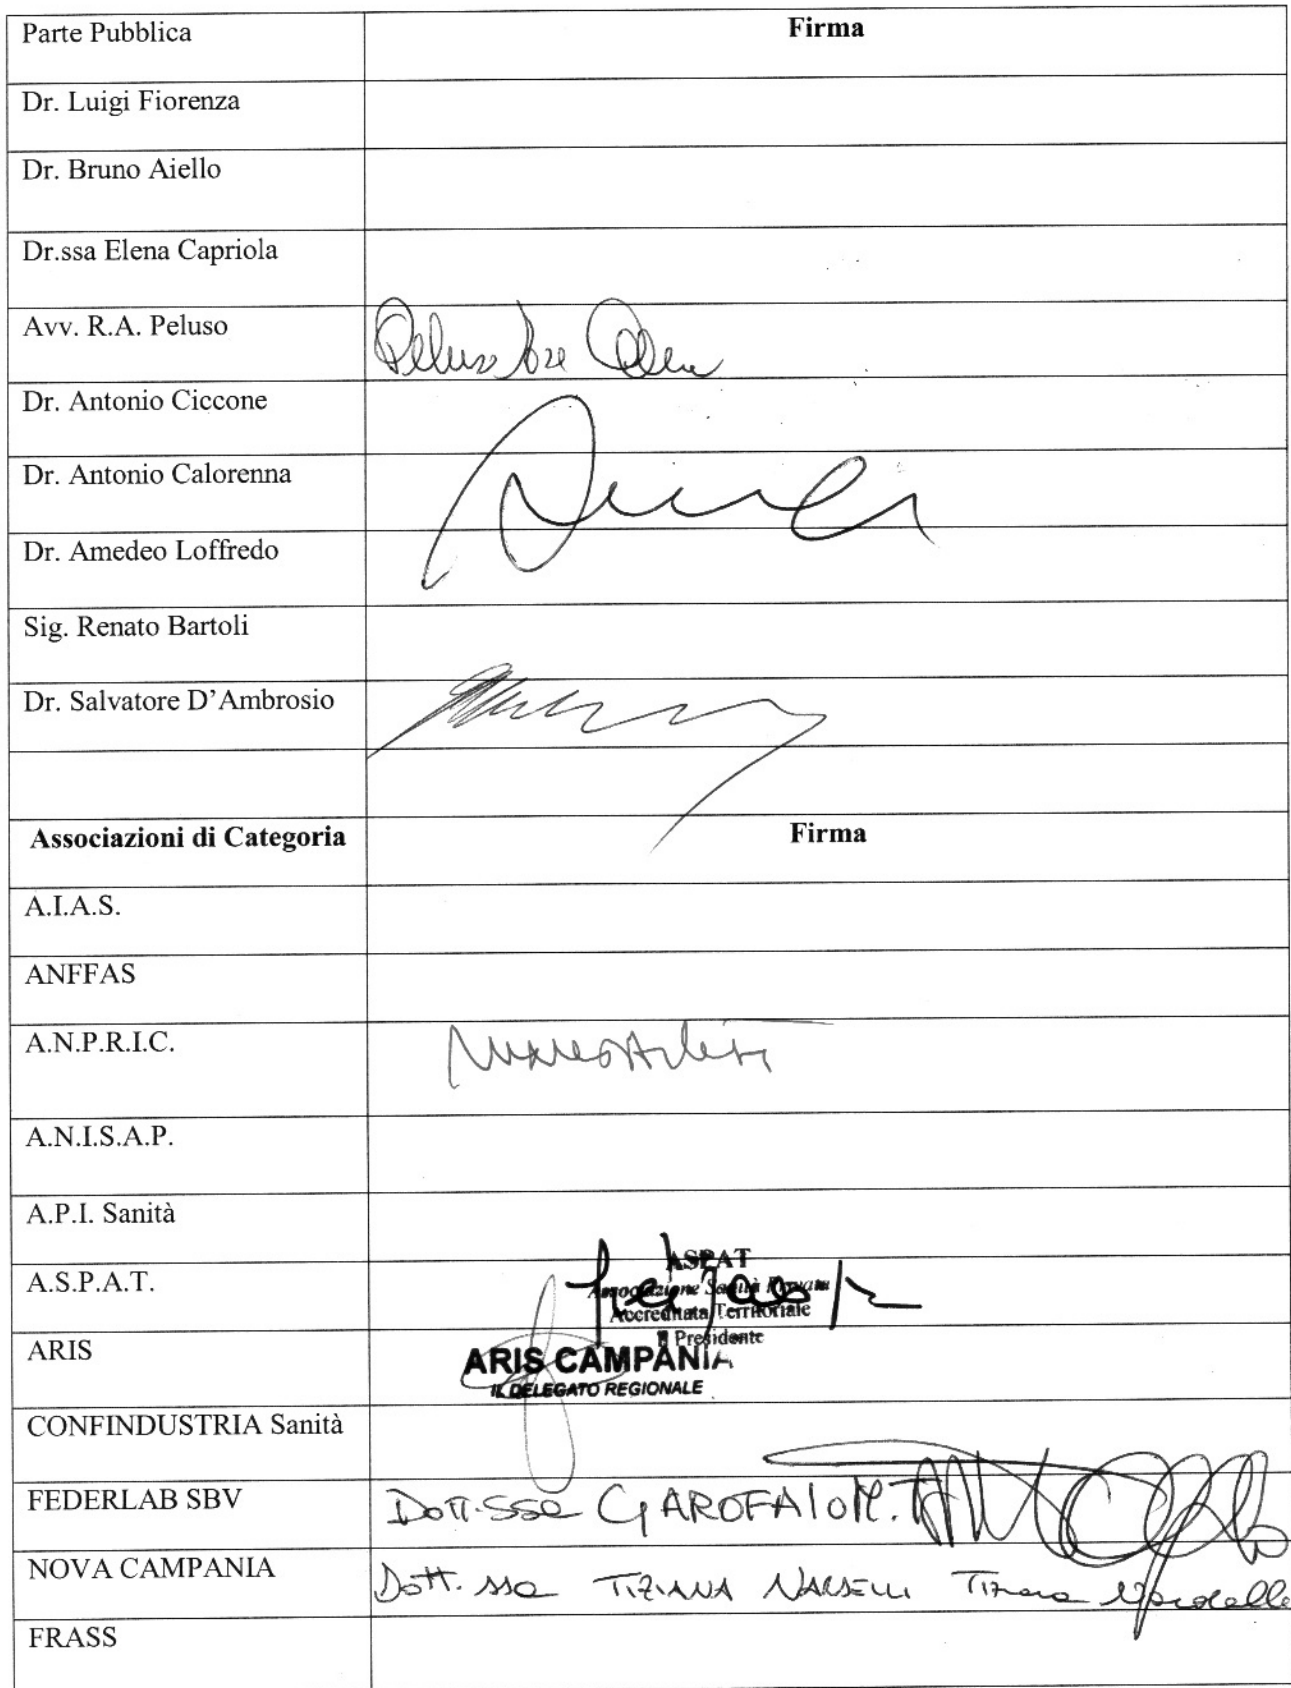 Parte Pubblica Firma
Dr. Luigi Fiorenza
Dr. Bruno Aiello
Dr.ssa Elena Capriola
Avv. R.A. Peluso
Dr. Antonio Ciccone
Dr. Antonio Calorenna
Dr. Amedeo Loffredo
Sig. Renato Bartoli
Dr. Salvatore D'Ambrosio
Associazioni di Categoria Firma
A.I.A.S.
ANFFAS
A.N.P.R.I.C.
A.N.I.S.A.P.
A.P.I. Sanità
ASPAT
A.S.P.A.T. Associazione Sanità Privata
Accreditata Territoriale
Il Presidente
ARIS ARIS CAMPANIA
IL DELEGATO REGIONALE
CONFINDUSTRIA Sanità
FEDERLAB SBV Dott.ssa GAROFALO M.
NOVA CAMPANIA Dott.ssa TIZIANA Tiziana
FRASS